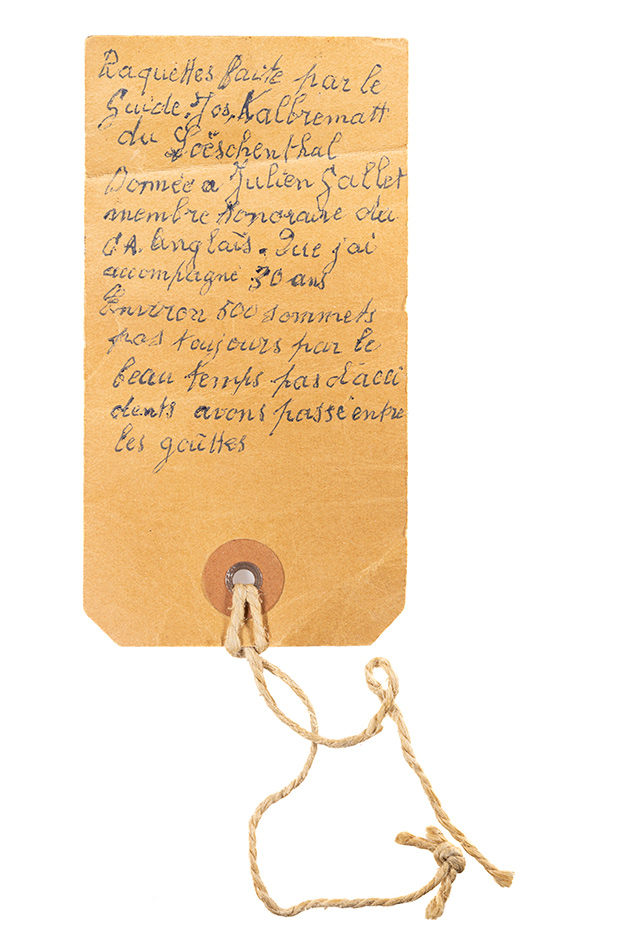 Raquettes faite par le
Guide. Jos, Kalbrematt
du Loëschenthal
Donnée a Julien Gallet
membre honoraire du
C A. Anglais. Que j'ai
accompagné 30 ans
Environ 500 sommets
pas toujours par le
beau temps pas d'acci
dents avons passé entre
les goûttes